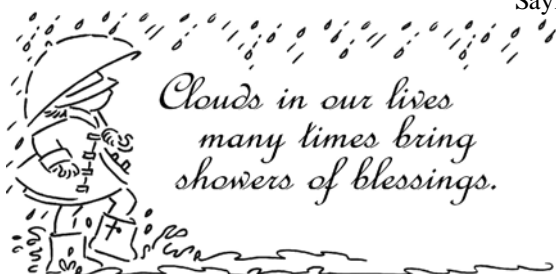 Clouds in our lives
many times bring
showers of blessings.